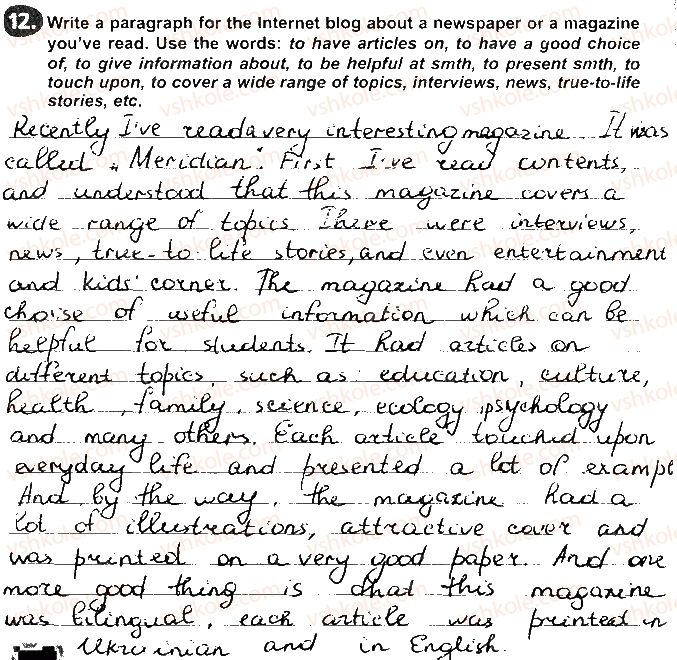 12. Write a paragraph for the Internet blog about a newspaper or a magazine
you've read. Use the words: to have articles on, to have a good choice
of, to give information about, to be helpful at smth, to present smth, to
touch upon, to cover a wide range of topics, interviews, news, true-to-life
stories, etc.
Recently I've read a very interesting magazine. It was
called „Meridian". First I've read contents,
and understood that this magazine covers a
wide range of topics. There were interviews,
news, true-to-life stories, and even entertainment
and kids' corner. The magazine had a good
choise of useful information which can be
helpful for students. It had articles on
different topics, such as education, culture,
health, family, science, ecology, psychology
and many others. Each article touched upon
everyday life and presented a lot of exampl
And by the way, the magazine had a
lot of illustrations, attractive cover and
was printed on a very good paper. And one
more good thing is that this magazine
was bilingual, each article was printed in
Ukrainian and in English.